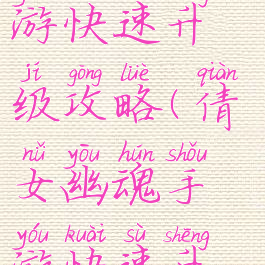 游快速升
jí gōng lüè qiàn
级攻略(倩
nǚ yōu hún shǒu
女幽魂手
yóu kuài sù shēng
游快速升